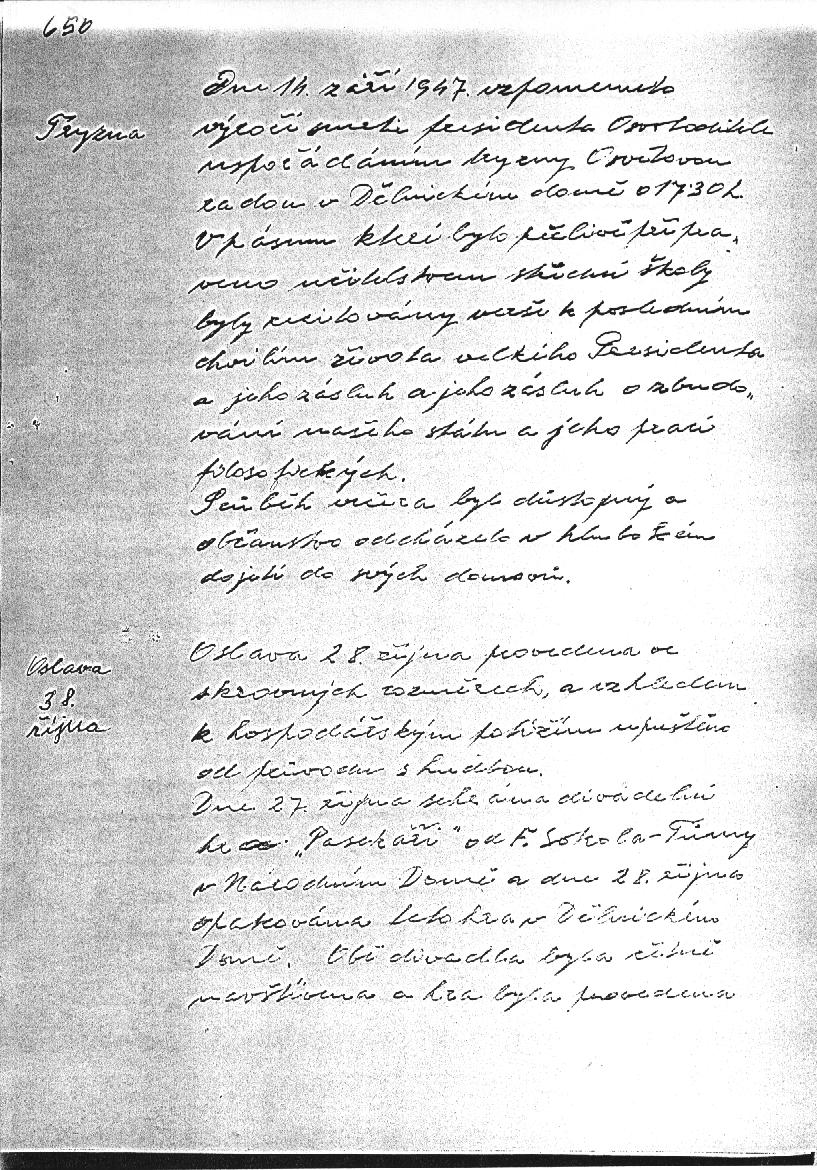 650
Dne 14. září 1947. vzpomenuto
Tryzna
výročí smrti presidenta Osvoboditele
uspořádáním tryzny Osvětovou
radou v Dělnickém domě o 17.30 h.
V pásmu které bylo pečlivě připra„
veno učitelstvem střední školy
byly recitovány verše k posledním
chvílím života velkého Presidenta
a jeho zásluh a jeho zásluh o zbudo„
vání našeho státu a jeho prací
filosofických.
Průběh večera byl důstojný a
občanstvo odcházelo v hlubokém
dojetí do svých domovů.
Oslava
38.
října
Oslava 28. října provedena ve
skrovných rozměrech, a vzhledem
k hospodářským potížím upuštěno
od průvodu s hudbou.
Dne 27. října sehrána divadelní
hra „Pasekáři" od F. Sokola-Tůmy
v Národním Domě a dne 28. října
opakována tato hra v Dělnickém
Domě. Obě divadla byla četně
navštívena a hra byla provedena